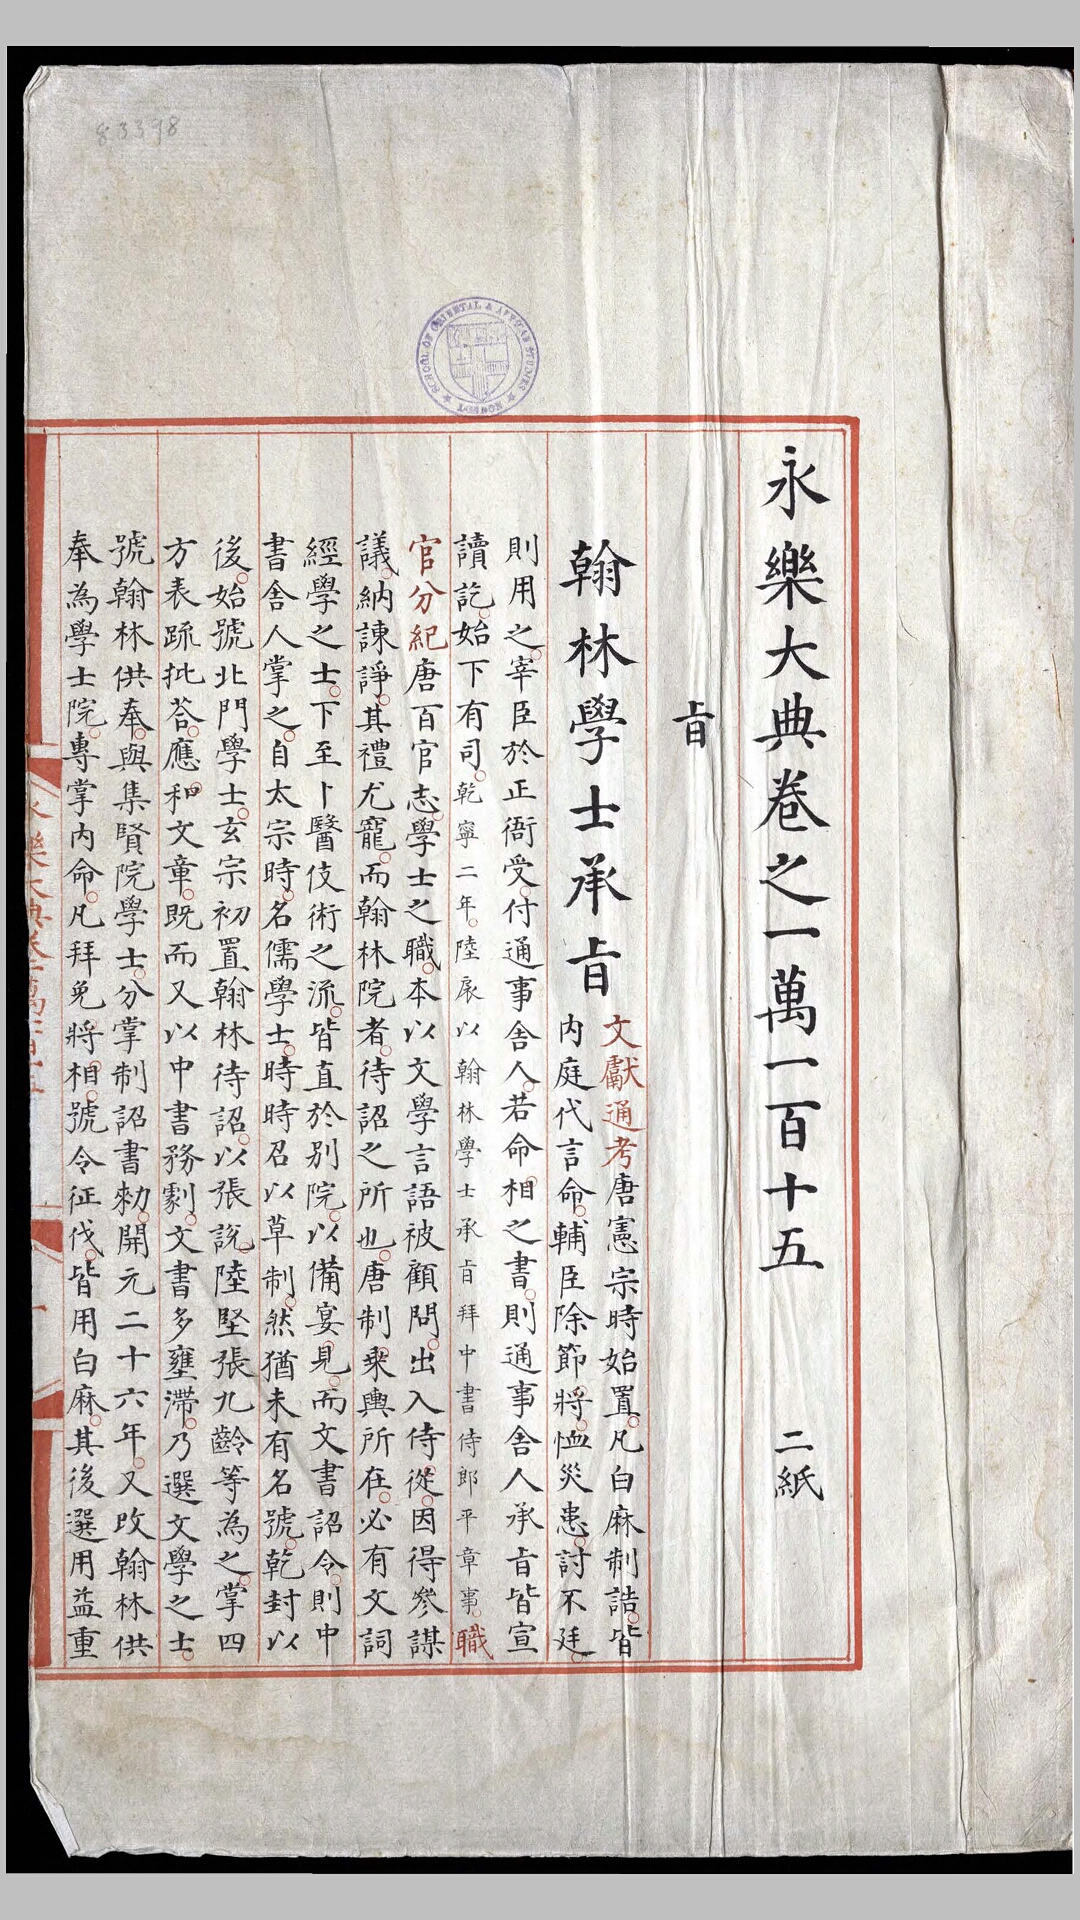 83398
SCHOOL OF ORIENTAL & AFRICAN STUDIES ★ LONDON ★
永樂大典卷之一萬一百十五 二紙
㫖
翰林學士承㫖
文獻通考唐憲宗時始置凡白麻制誥皆
内庭代言命輔臣除節將恤災患討不廷
則用之宰臣於正衙受付通事舍人若命相之書則通事舍人承㫖皆宣
讀訖始下有司乾寧二年陸扆以翰林學士承㫖拜中書侍郎平章事職
官分紀唐百官志學士之職本以文學言語被顧問出入侍從因得參謀
議納諫諍其禮尤寵而翰林院者待詔之所也唐制乘輿所在必有文詞
經學之士下至卜醫伎術之流皆直於别院以備宴見而文書詔令則中
書舍人掌之自太宗時名儒學士時時召以草制然猶未有名號乾封以
後始號北門學士玄宗初置翰林待詔以張說陸堅張九齡等為之掌四
方表䟽批荅應和文章既而又以中書務劇文書多壅滯乃選文學之士
號翰林供奉與集賢院學士分掌制詔書勑開元二十六年又改翰林供
奉為學士院專掌内命凡拜免將相號令征伐皆用白麻其後選用益重